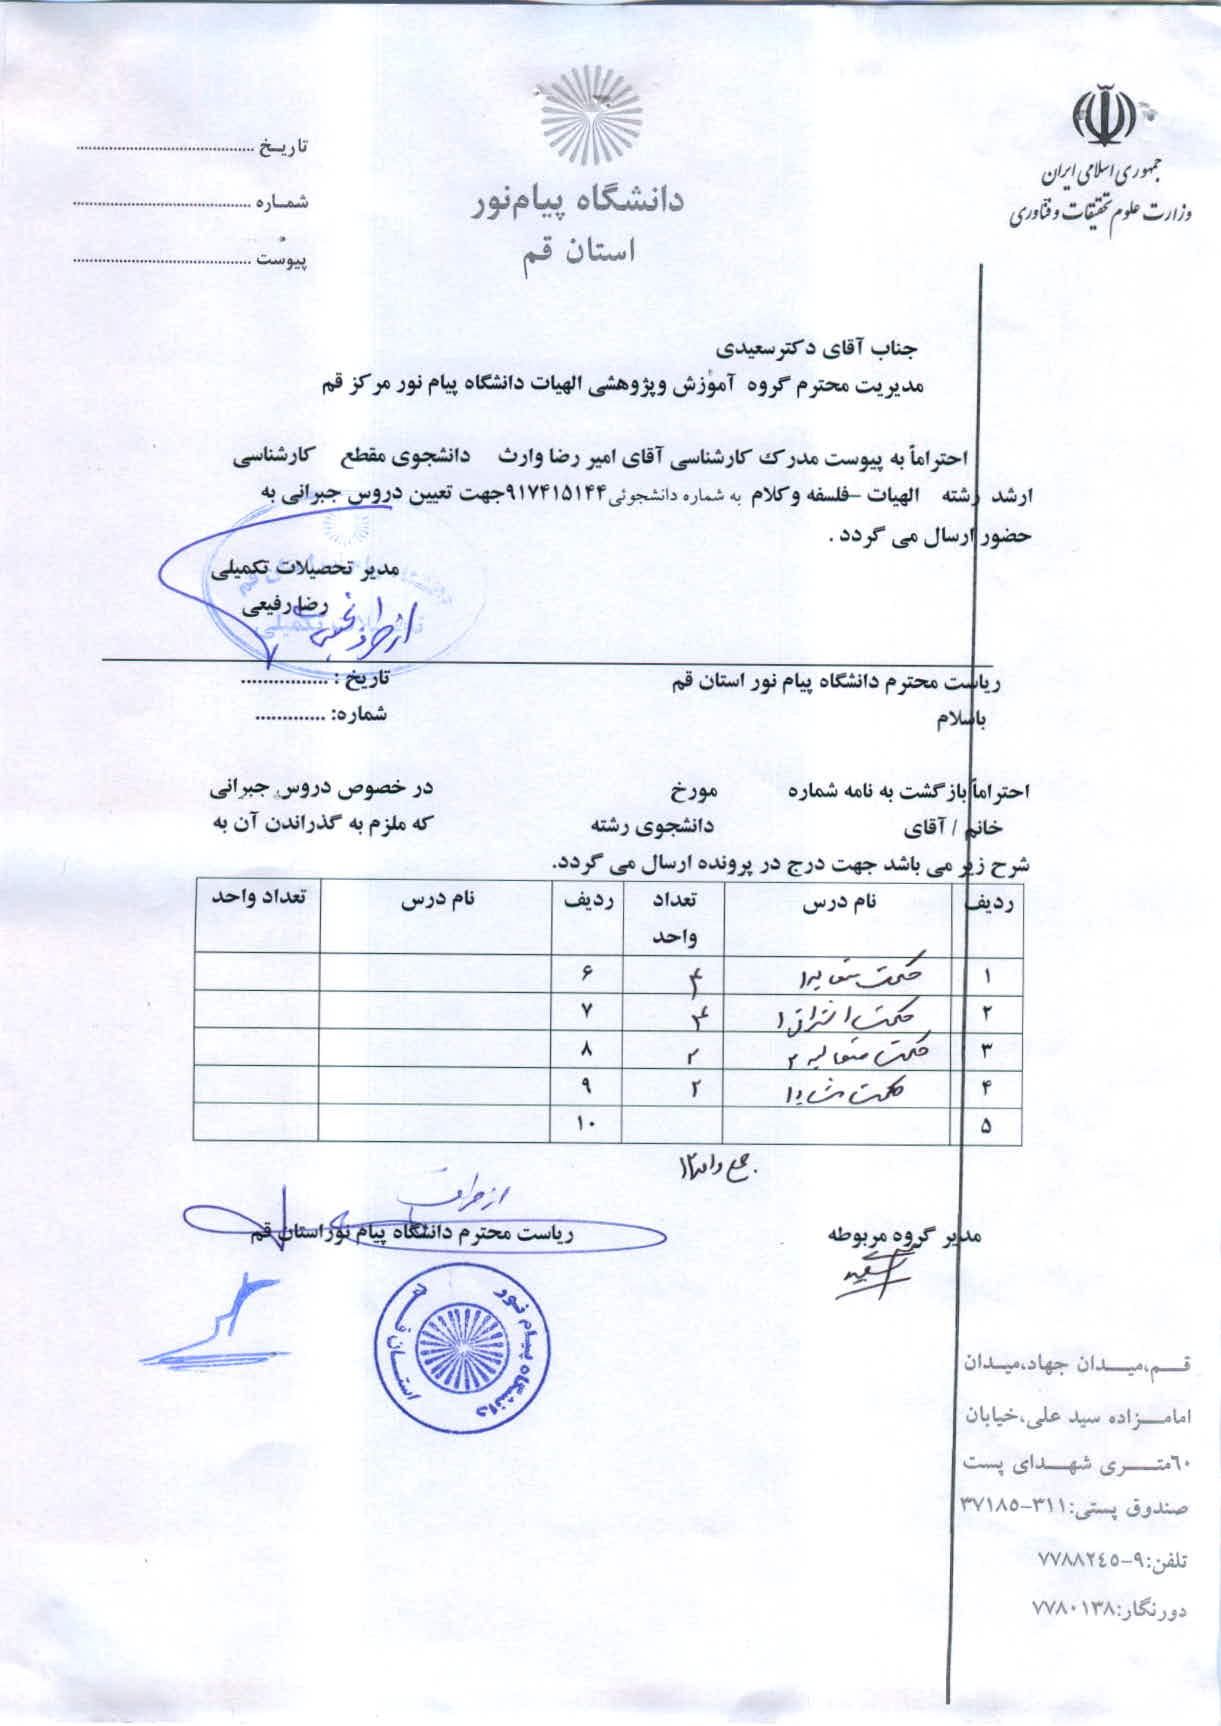 جمهوری اسلامی ایران
وزارت علوم تحقیقات و فناوری
دانشگاه پیام‌نور
استان قم
تاریـخ ..........................................
شمـاره ..........................................
پیوست ..........................................
جناب آقای دکترسعیدی
مدیریت محترم گروه آموزش وپژوهشی الهیات دانشگاه پیام نور مرکز قم
احتراماً به پیوست مدرک کارشناسی آقای امیر رضا وارث دانشجوی مقطع کارشناسی
ارشد رشته الهیات –فلسفه وکلام به شماره دانشجوئی۹۱۷۴۱۵۱۴۴جهت تعیین دروس جبرانی به
حضور ارسال می گردد .
مدیر تحصیلات تکمیلی
رضا رفیعی
ریاست محترم دانشگاه پیام نور استان قم
تاریخ : ................
باسلام
شماره: .............
احتراماً بازگشت به نامه شماره مورخ در خصوص دروس جبرانی
خانم / آقای دانشجوی رشته که ملزم به گذراندن آن به
شرح زیر می باشد جهت درج در پرونده ارسال می گردد.
ردیف نام درس تعداد واحد ردیف نام درس تعداد واحد
۱ حکمت متعالیه ۱ ۴ ۶
۲ حکمت اشراق ۱ ۴ ۷
۳ حکمت متعالیه ۲ ۲ ۸
۴ حکمت مشاء ۱ ۲ ۹
۵ ۱۰
جمع واحد ۱۲
از طرف
مدیر گروه مربوطه
ریاست محترم دانشگاه پیام نوراستان قم
دانشگاه پیام نور
استان قم
قـــم،میـــدان جهاد،میـدان
امامـــزاده سید علی،خیابان
٦٠متــــری شهـــدای پست
صندوق پستی:۳۱۱-۳۷۱۸۵
تلفن:۹-۷۷۸۸۲٤٥
دورنگار:۷۷۸۰۱۳۸